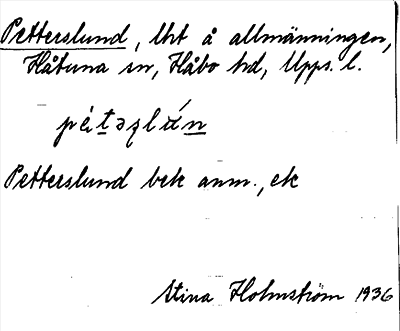 Petterslund, lht å allmänningen,
Håtuna sn, Håbo hd, Upps. l.
pétəʐlán
Petterslund bek anm., ek
Stina Holmström 1936